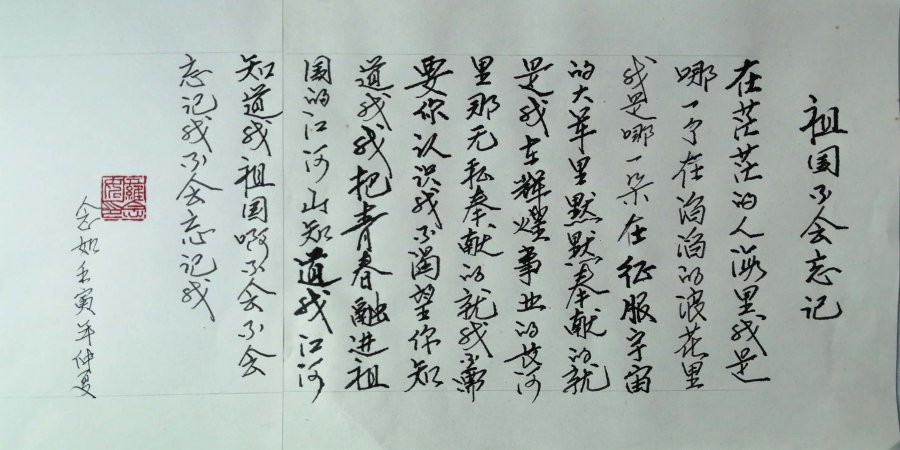 祖国不会忘记
在茫茫的人海里我是
哪一个在滔滔的浪花里
我是哪一朵在征服宇宙
的大军里默默奉献的就
是我在辉煌事业的长河
里那无私奉献的就我不需
要你认识我不渴望你知
道我我把青春融进祖
国的江河山知道我江河
知道我祖国啊不会不会
忘记我不会忘记我
念如壬寅年仲夏